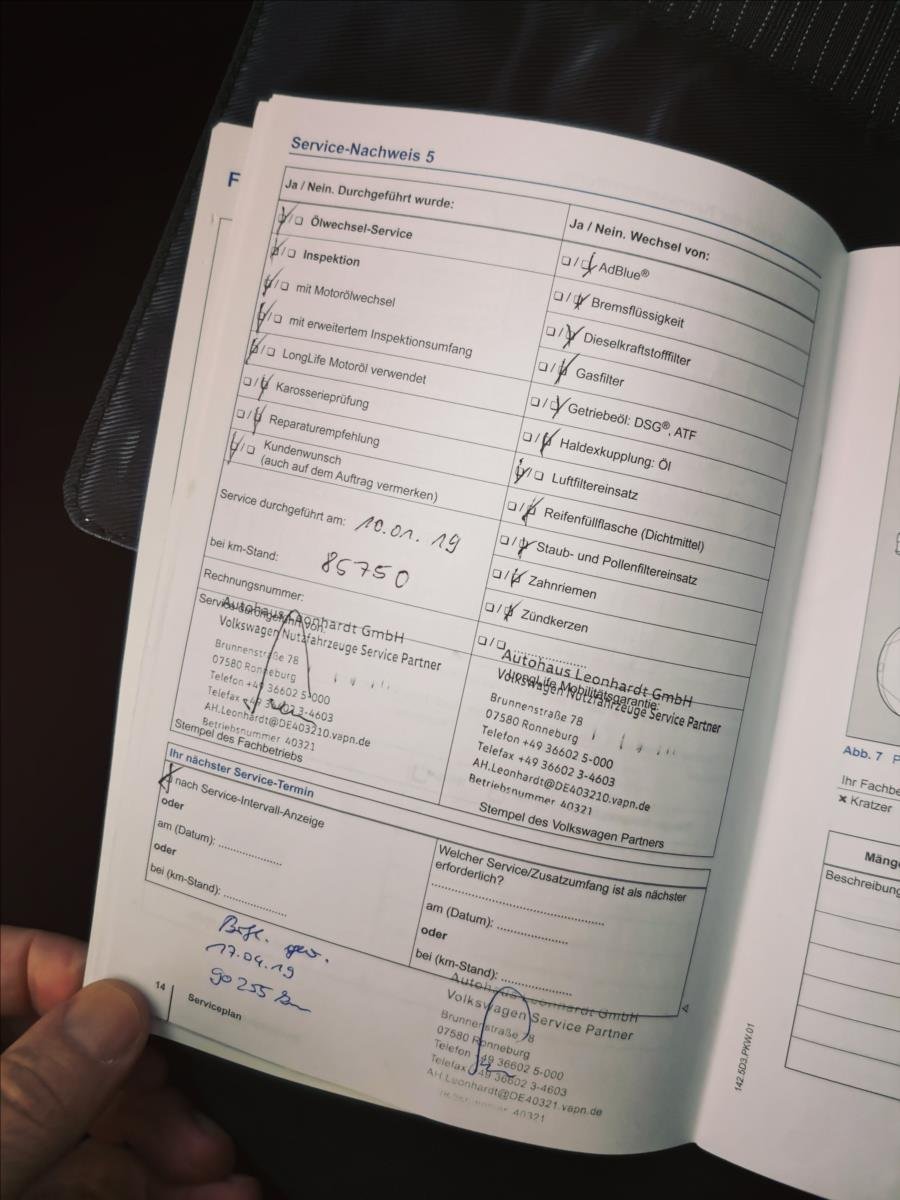 Service-Nachweis 5
F
Ja / Nein. Durchgeführt wurde:
Ölwechsel-Service
Inspektion
mit Motorölwechsel
mit erweitertem Inspektionsumfang
LongLife Motoröl verwendet
Karosserieprüfung
Reparaturempfehlung
Kundenwunsch
(auch auf dem Auftrag vermerken)
Service durchgeführt am: 10.01.19
bei km-Stand: 85750
Rechnungsnummer:
Service durchgeführt von:
Autohaus Leonhardt GmbH
Volkswagen Nutzfahrzeuge Service Partner
Brunnenstraße 78
07580 Ronneburg
Telefon +49 36602 5-000
Telefax +49 36602 3-4603
AH.Leonhardt@DE403210.vapn.de
Betriebsnummer 40321
Stempel des Fachbetriebs
Ja / Nein. Wechsel von:
AdBlue®
Bremsflüssigkeit
Dieselkraftstofffilter
Gasfilter
Getriebeöl: DSG®, ATF
Haldexkupplung: Öl
Luftfiltereinsatz
Reifenfüllflasche (Dichtmittel)
Staub- und Pollenfiltereinsatz
Zahnriemen
Zündkerzen
LongLife Mobilitätsgarantie:
Autohaus Leonhardt GmbH
Volkswagen Nutzfahrzeuge Service Partner
Brunnenstraße 78
07580 Ronneburg
Telefon +49 36602 5-000
Telefax +49 36602 3-4603
AH.Leonhardt@DE403210.vapn.de
Betriebsnummer 40321
Stempel des Volkswagen Partners
Ihr nächster Service-Termin
nach Service-Intervall-Anzeige
oder
am (Datum): ................
oder
bei (km-Stand): ................
Welcher Service/Zusatzumfang ist als nächster
erforderlich?
am (Datum): ................
oder
bei (km-Stand): ................
17.04.19
90255 km
Autohaus Leonhardt GmbH
Volkswagen Service Partner
Brunnenstraße 78
07580 Ronneburg
Telefon +49 36602 5-000
Telefax +49 36602 3-4603
AH.Leonhardt@DE40321.vapn.de
40321
14
Serviceplan
142.5D3.PKW.01
Abb. 7
Ihr Fachbe
× Kratzer
Mäng
Beschreibung